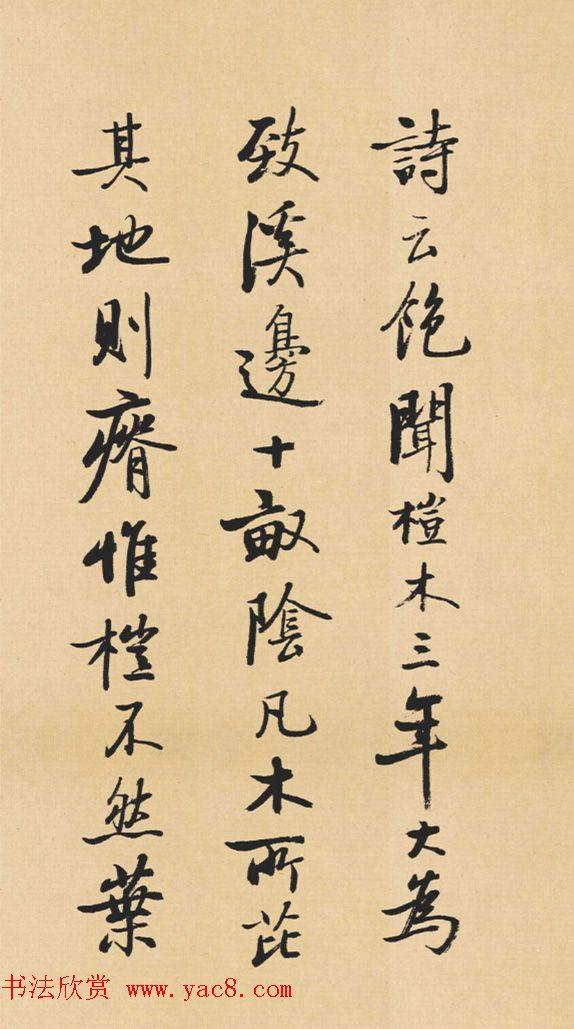 詩云飽聞榿木三年大為
致溪邊十畝陰凡木所芘
其地則瘠惟榿不然葉
书法欣赏 www.yac8.com